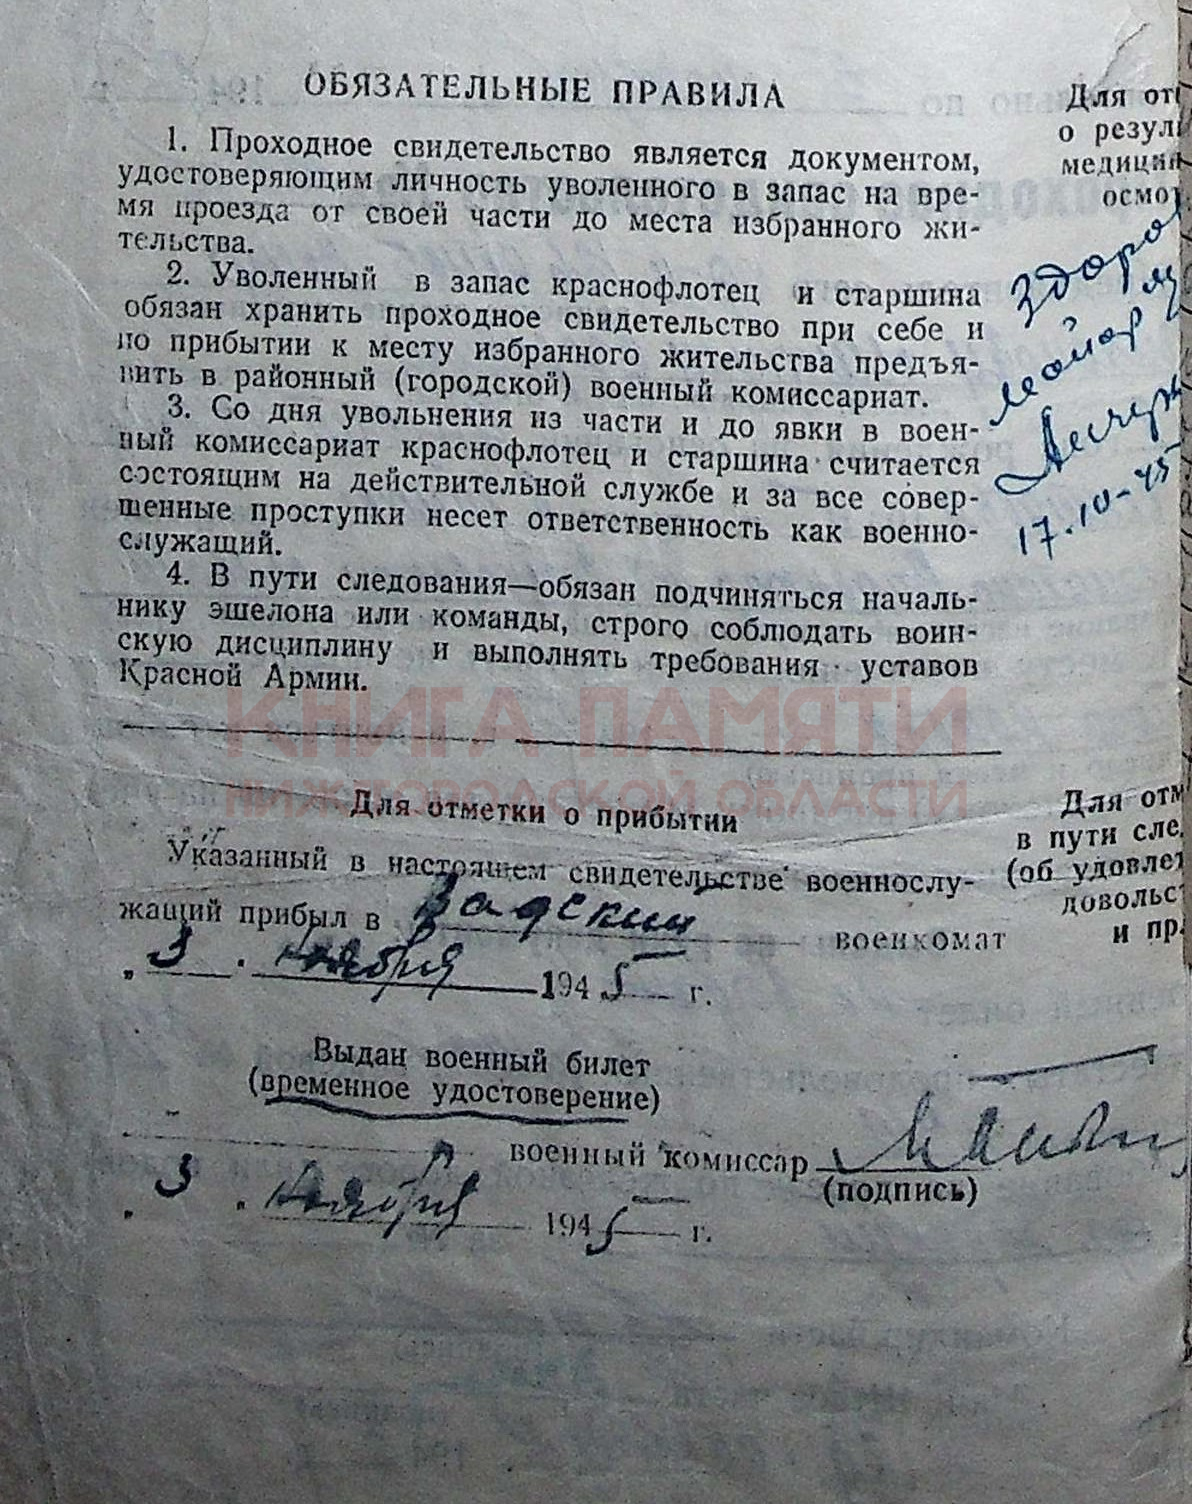 ОБЯЗАТЕЛЬНЫЕ ПРАВИЛА
1. Проходное свидетельство является документом,
удостоверяющим личность уволенного в запас на вре-
мя проезда от своей части до места избранного жи-
тельства.
2. Уволенный в запас краснофлотец и старшина
обязан хранить проходное свидетельство при себе и
по прибытии к месту избранного жительства предъя-
вить в районный (городской) военный комиссариат.
3. Со дня увольнения из части и до явки в воен-
ный комиссариат краснофлотец и старшина считается
состоящим на действительной службе и за все совер-
шенные проступки несет ответственность как военно-
служащий.
4. В пути следования—обязан подчиняться началь-
нику эшелона или команды, строго соблюдать воин-
скую дисциплину и выполнять требования уставов
Красной Армии.
КНИГА ПАМЯТИ
НИЖГОРОДСКОЙ ОБЛАСТИ
Для отметки о прибытии
Указанный в настоящем свидетельстве военнослу-
жащий прибыл в Вадский военкомат
„ 3 . ноября 1945 г.
Выдан военный билет
(временное удостоверение)
военный комиссар
(подпись)
„ 3 „ ноября 1945 г.
Для от
о резул
медицин
осмот
здоров
майор
17.10-45
Для отм
в пути сле
(об удовлет
довольст
и пр